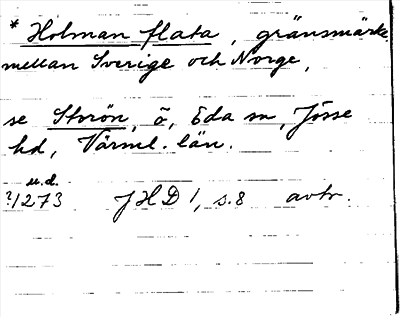 * Holman flata, gränsmärke
mellan Sverige och Norge,
se Storön, ö, Eda sn, Jösse
hd, Värml. län.
u.d.
?1273 JHD 1, s.8 avtr.